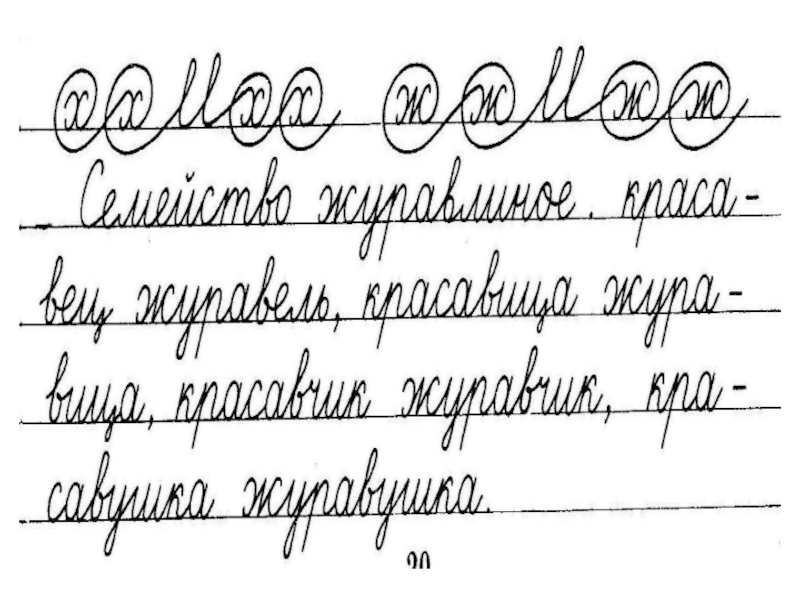 х х И х х ж ж И ж ж
Семейство журавлиное. краса-
вец журавель, красавица жура-
вица, красавчик журавчик, кра-
савушка журавушка.
20